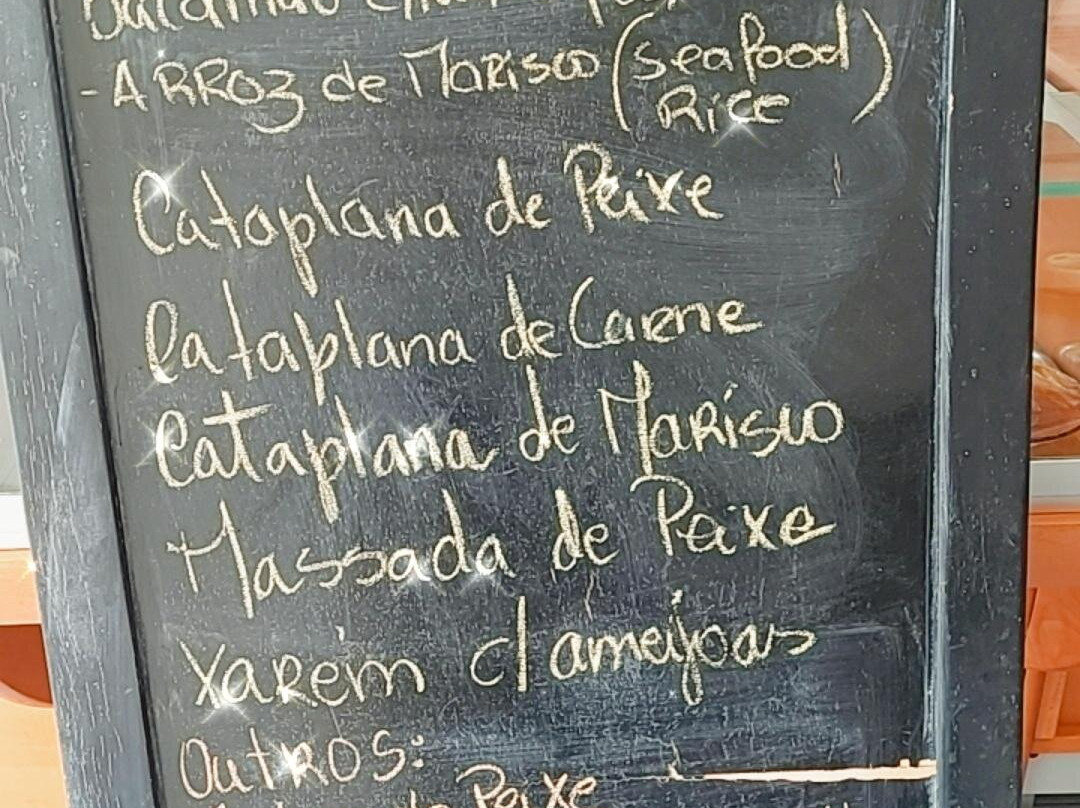 - ARROZ de Marisco (seafood
Rice)
Cataplana de Peixe
Cataplana de Carne
Cataplana de Marisco
Massada de Peixe
Xarém c/ ameijoas
Outros:
Peixe